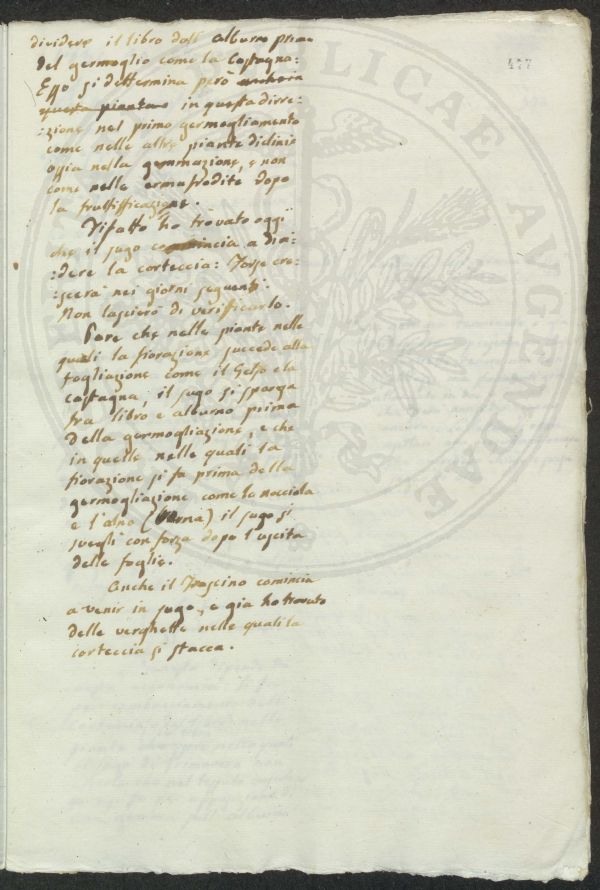 477
dividere il libro dall' alburno prima
del germoglio come la Castagna:
Esso si dettermina però anche in
questa piantano in questa dirre-
:zione nel primo germogliamento
come nelle altre piante diclinie
ossia nella gemmazione, e non
come nelle ermafrodite dopo
la fruttifficazione.
Difatto ho trovato oggi
che il sugo comincia a divi-
:dere la corteccia: Forse cre-
:scerà nei giorni seguenti.
Non lascierò di verificarlo.
Pare che nelle piante nelle
quali la fiorazione succede alla
fogliazione come il Gelso e la
castagna, il sugo si sparga
fra libro e alburno prima
della germogliazione, e che
in quelle nelle quali la
fiorazione si fa prima della
germogliazione come la nocciola
e l'alno (Verna) il sugo si
svegli con forza dopo l'uscita
delle foglie.
Anche il Frascino comincia
a venir in sugo, e già ho trovato
delle verghette nelle quali la
corteccia si stacca.